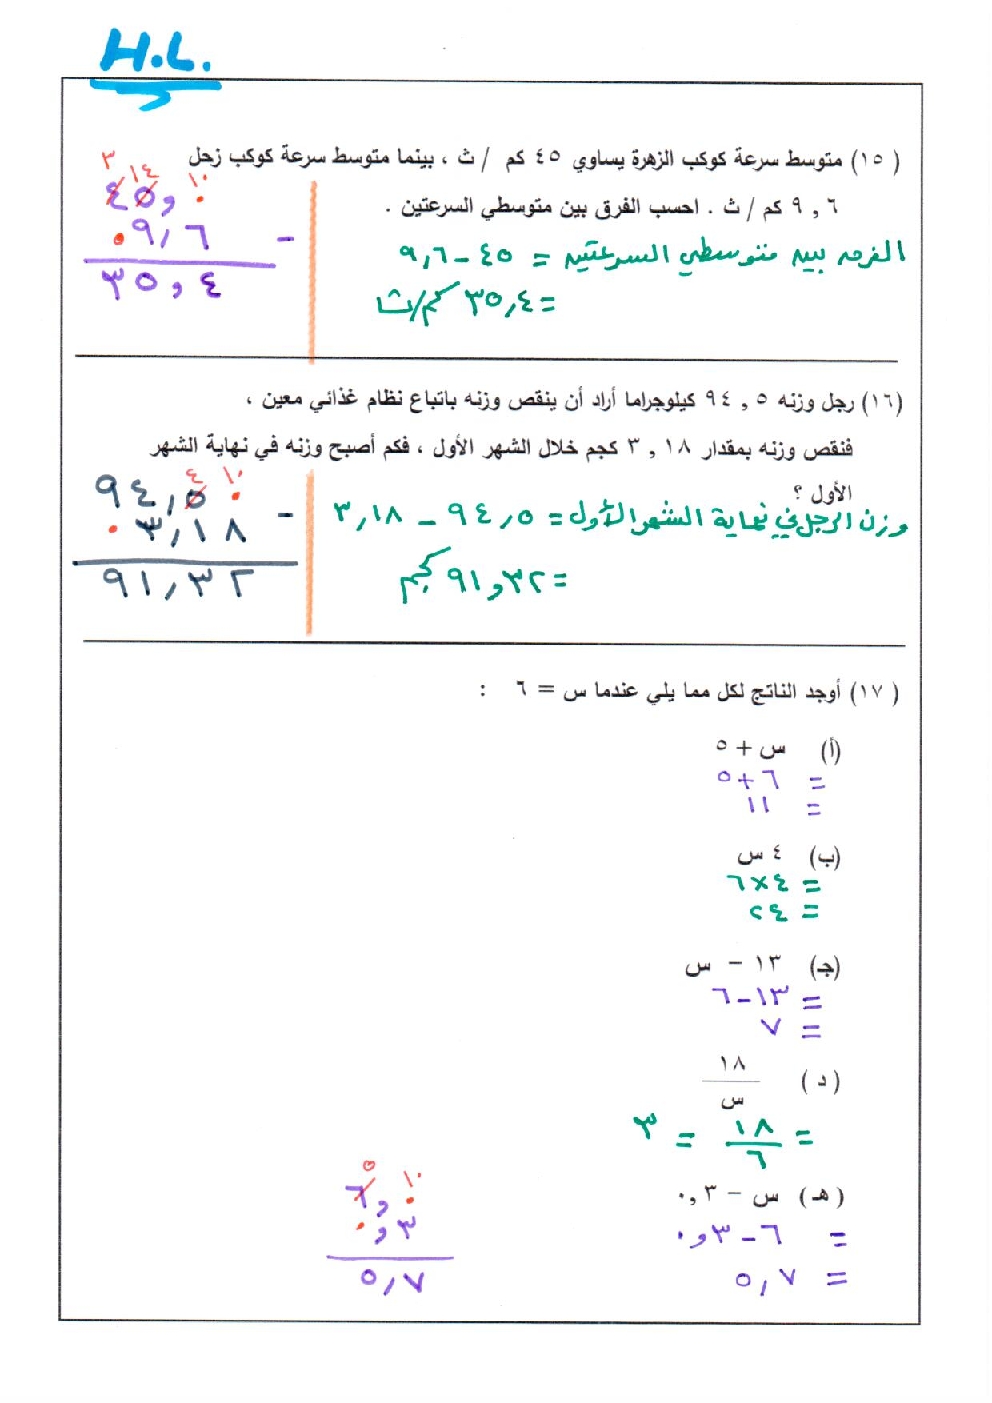 H.L.
(١٥) متوسط سرعة كوكب الزهرة يساوي ٤٥ كم / ث ، بينما متوسط سرعة كوكب زحل
٩,٦ كم / ث . احسب الفرق بين متوسطي السرعتين .
الفرق بين متوسطي السرعتين = ٤٥ - ٩,٦
= ٣٥,٤ كم/ث
٣ ١٤ ١٠
٤٥,٠
٠٩,٦ -
٣٥,٤
(١٦) رجل وزنه ٩٤,٥ كيلوجراما أراد أن ينقص وزنه باتباع نظام غذائي معين ،
فنقص وزنه بمقدار ٣,١٨ كجم خلال الشهر الأول ، فكم أصبح وزنه في نهاية الشهر
الأول ؟
وزن الرجل في نهاية الشهر الأول = ٩٤,٥ - ٣,١٨
= ٩١,٣٢ كجم
٤ ١٠
٩٤,٥٠
٠٣,١٨ -
٩١,٣٢
(١٧) أوجد الناتج لكل مما يلي عندما س = ٦ :
(أ) س + ٥
= ٦ + ٥
= ١١
(ب) ٤ س
= ٤ × ٦
= ٢٤
(جـ) ١٣ - س
= ١٣ - ٦
= ٧
(د) ١٨ / س
= ١٨ / ٦ = ٣
(هـ) س - ٠,٣
= ٦ - ٠,٣
= ٥,٧
٥ ١٠
٦,٠
٠,٣
٥,٧